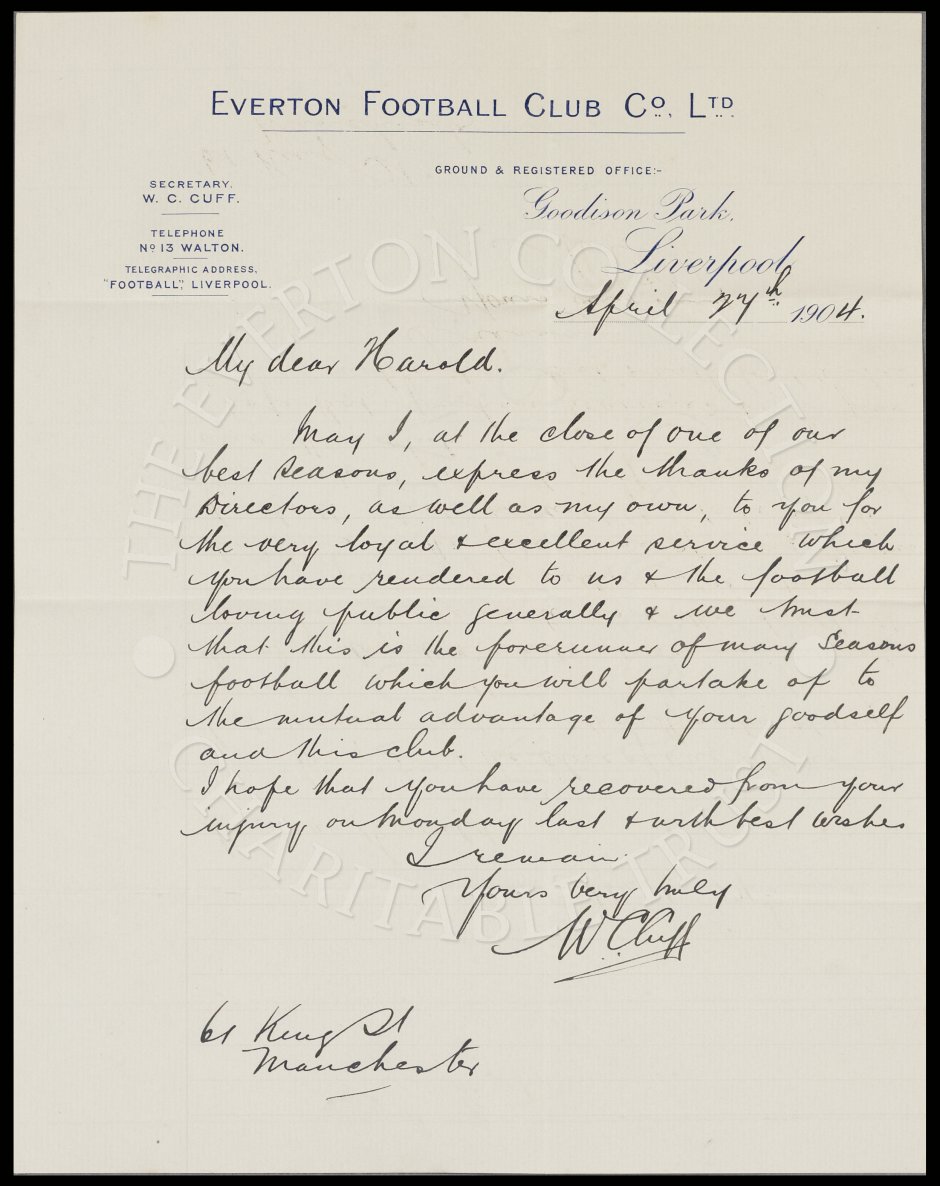 EVERTON FOOTBALL CLUB Co., LTD.
GROUND & REGISTERED OFFICE:-
Goodison Park,
Liverpool,
SECRETARY.
W. C. CUFF.
TELEPHONE
No 13 WALTON.
TELEGRAPHIC ADDRESS,
"FOOTBALL", LIVERPOOL.
April 27th 1904.
My dear Harold.
May I, at the close of one of our
best seasons, express the thanks of my
Directors, as well as my own, to you for
the very loyal & excellent service which
you have rendered to us & the football
loving public generally & we trust
that this is the forerunner of many seasons
football which you will partake of to
the mutual advantage of your goodself
and this club.
I hope that you have recovered from your
injury on Monday last & with best wishes
I remain
Yours very truly
W. C. Cuff
61 King St
Manchester
THE EVERTON COLLECTION
CHARITABLE TRUST